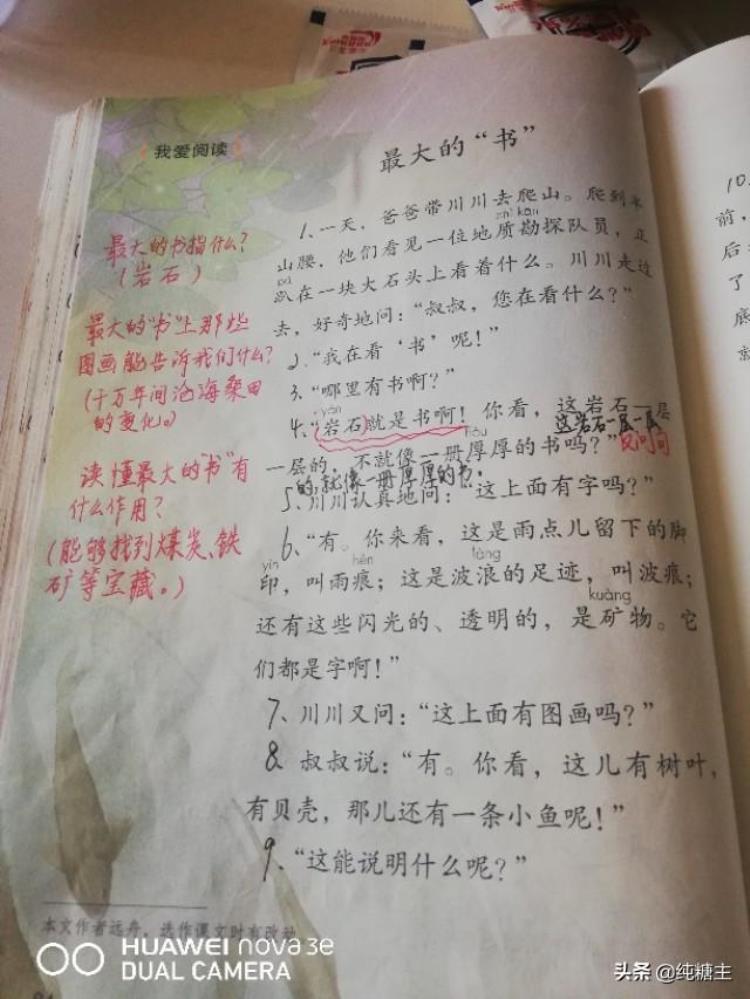 我爱阅读
最大的“书”
1、一天，爸爸带川川去爬山。爬到半
zhì kān
山腰，他们看见一位地质勘探队员，正
pā
趴在一块大石头上看着什么。川川走过
去，好奇地问：“叔叔，您在看什么？”
2、“我在看‘书’呢！”
3、“哪里有书啊？”
yán
4、“岩石就是书啊！你看，这岩石一层
这岩石一层一层
hòu
一层的，不就像一册厚厚的书吗？”反问句
的，就像一册厚厚的书。
5、川川认真地问：“这上面有字吗？”
6、“有。你来看，这是雨点儿留下的脚
yìn hén làng
印，叫雨痕；这是波浪的足迹，叫波痕；
kuàng
还有这些闪光的、透明的，是矿物。它
们都是字啊！”
7、川川又问：“这上面有图画吗？”
8 叔叔说：“有。你看，这儿有树叶，
有贝壳，那儿还有一条小鱼呢！”
9、“这能说明什么呢？”
最大的书指什么？
（岩石）
最大的“书”上那些
图画能告诉我们什么？
（千万年间沧海桑田
的变化。）
读懂最大的“书”有
什么作用？
（能够找到煤炭、铁
矿等宝藏。）
本文作者远舟，选作课文时有改动。
10、
前，
后
了
底
HUAWEI nova 3e
DUAL CAMERA
头条 @纯糖主